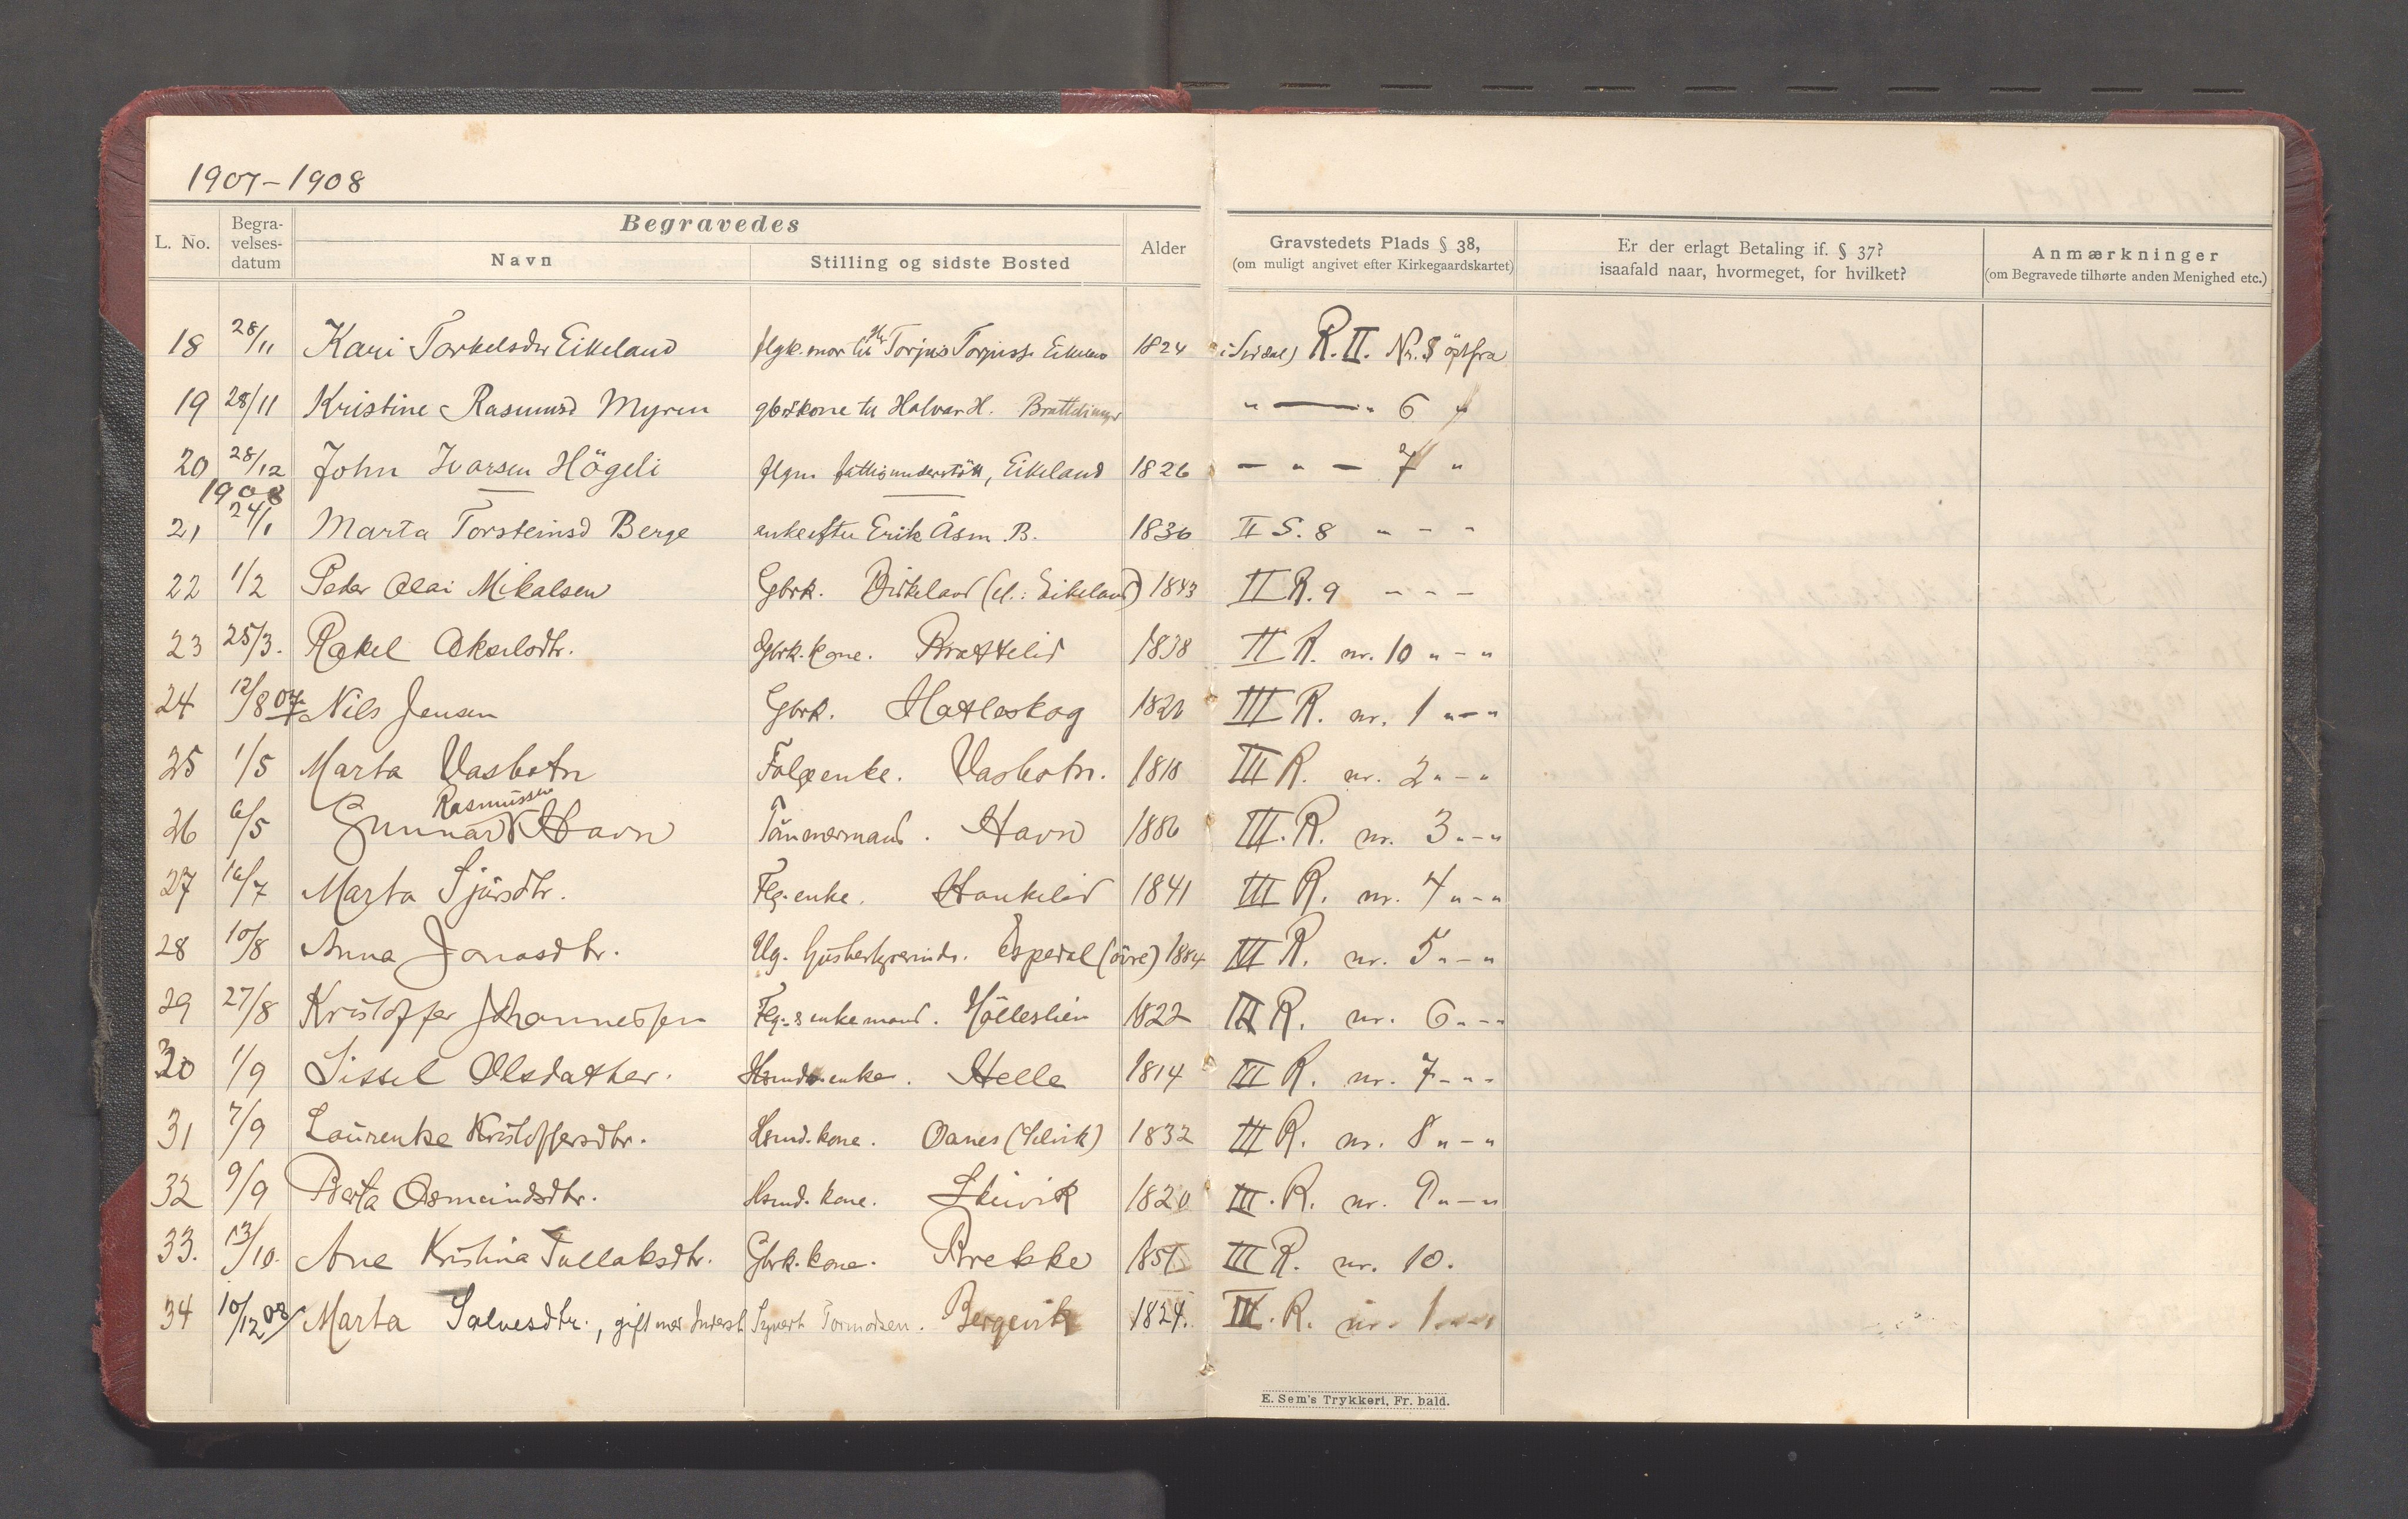 1907-1908
L. No. Begra-velses-datum Begravedes Alder Gravstedets Plads § 38, (om muligt angivet efter Kirkegaardskartet) Er der erlagt Betaling if. § 37? isaafald naar, hvormeget, for hvilket? Anmærkninger (om Begravede tilhørte anden Menighed etc.)
Navn Stilling og sidste Bosted
18 28/11 Kari Torkelsdtr Eikeland flgk. mor til Torjus Torjuss. 1824 R. II. Nr.
19 28/11 Kristine Rasmusd Myren gbrkone til Halvar H. " — " 6 "
20 28/12 John Ivarsen Högeli flgm fattigunderstött, Eikeland 1826 — " — 7 "
1908
21 24/1 Marta Torsteinsd Berge enke efter Erik Åsm. B. 1836 II S. 8 " - -
22 1/2 Peder Olai Mikalsen Gbrk. Birkeland (el.: Eikeland) 1843 II R. 9 - - -
23 25/3. Rakel Akselsdtr. Gbrk. kone. Brattelid 1838 II R. nr. 10 " - "
24 12/8 07 Nils Jensen Gbrk. Hatleskog III R. nr. 1 " - "
25 1/5 Marta Vasbotn Folgeenke. Vasbotn. 1818 III R. nr. 2 " - "
26 6/5 Gunnar Rasmussen Havn Tömmermand. Havn 1886 III. R. nr. 3 " - "
27 16/7 Marta Sjursdtr. Flg. enke. Haukelid 1841 III R. nr. 4 " - "
28 10/8 Anna Jonasdtr. Ug. Espedal (övre) 1884 III R. nr. 5 " - "
29 27/8 Kristoffer Johannessen Flg.s enkemand. Hölleslien 1822 III R. nr. 6 " - -
30 1/9 Sissel Olsdatter. Hsmds enke. Helle 1814 III R. nr. 7 - " -
31 7/9 Laurentse Kristoffersdtr. Hsmd. kone. Oanes (Selvik) 1832 III R. nr. 8 " - "
32 9/9 Berta Osmundsdtr. Hsmd. kone. Skeivik 1820 III. R. nr. 9 " - "
33. 13/10. Ane Kristina Tallaksdtr. Gbrk. kone. Brekke 1851 III R. nr. 10.
34 10/12 08 Marta Salvesdtr., gift med Inderst Sigvart Tormodsen. Bergevik 1824. IV. R. nr. 1 " - "
E. Sem's Trykkeri, Fr. hald.